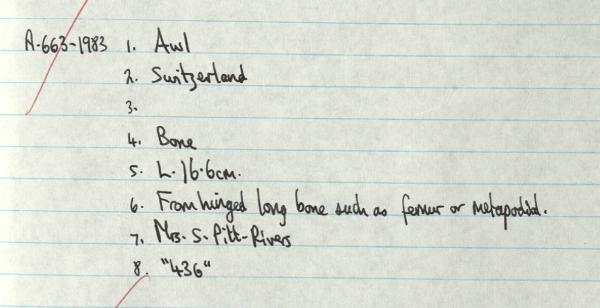 A.663-1983 1. Awl
2. Switzerland
3.
4. Bone
5. L. 16.6cm.
6. From hinged long bone such as femur or metapodial.
7. Mrs. S. Pitt-Rivers
8. "436"